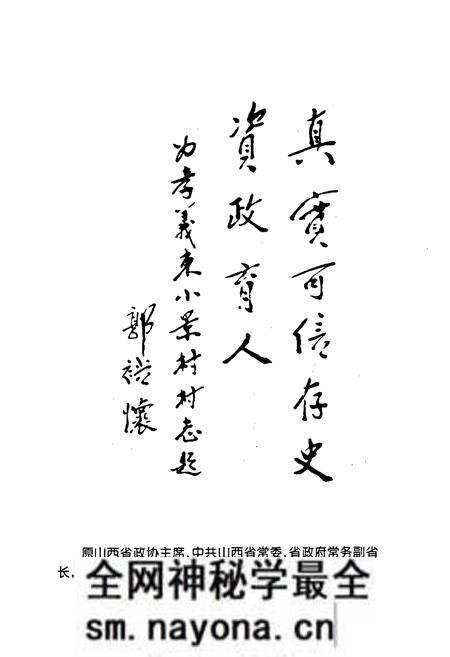 真實可信存史
資政育人
为孝義東小景村村志題
郭裕懷
原山西省政协主席,中共山西省常委,省政府常务副省
长,
全网神秘学最全
sm.nayona.cn